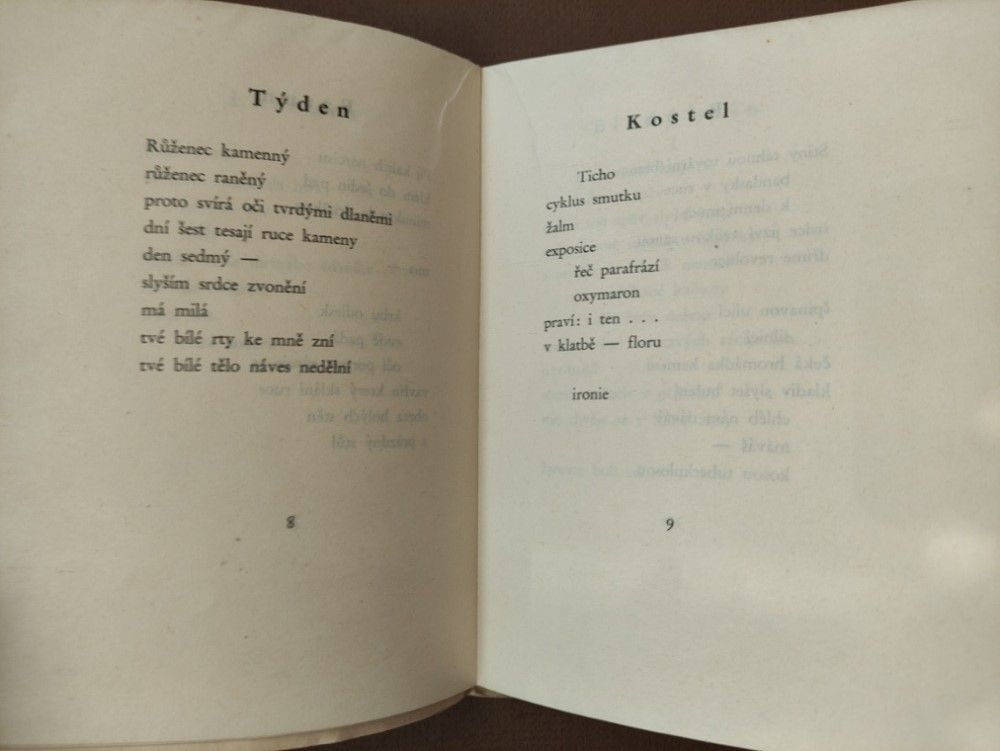 Týden
Růženec kamenný
růženec raněný
proto svírá oči tvrdými dlaněmi
dní šest tesají ruce kameny
den sedmý —
slyším srdce zvonění
má milá
tvé bílé rty ke mně zní
tvé bílé tělo náves nedělní
8
Kostel
Ticho
cyklus smutku
žalm
exposice
řeč parafrází
oxymaron
praví: i ten . . .
v klatbě — floru
ironie
9